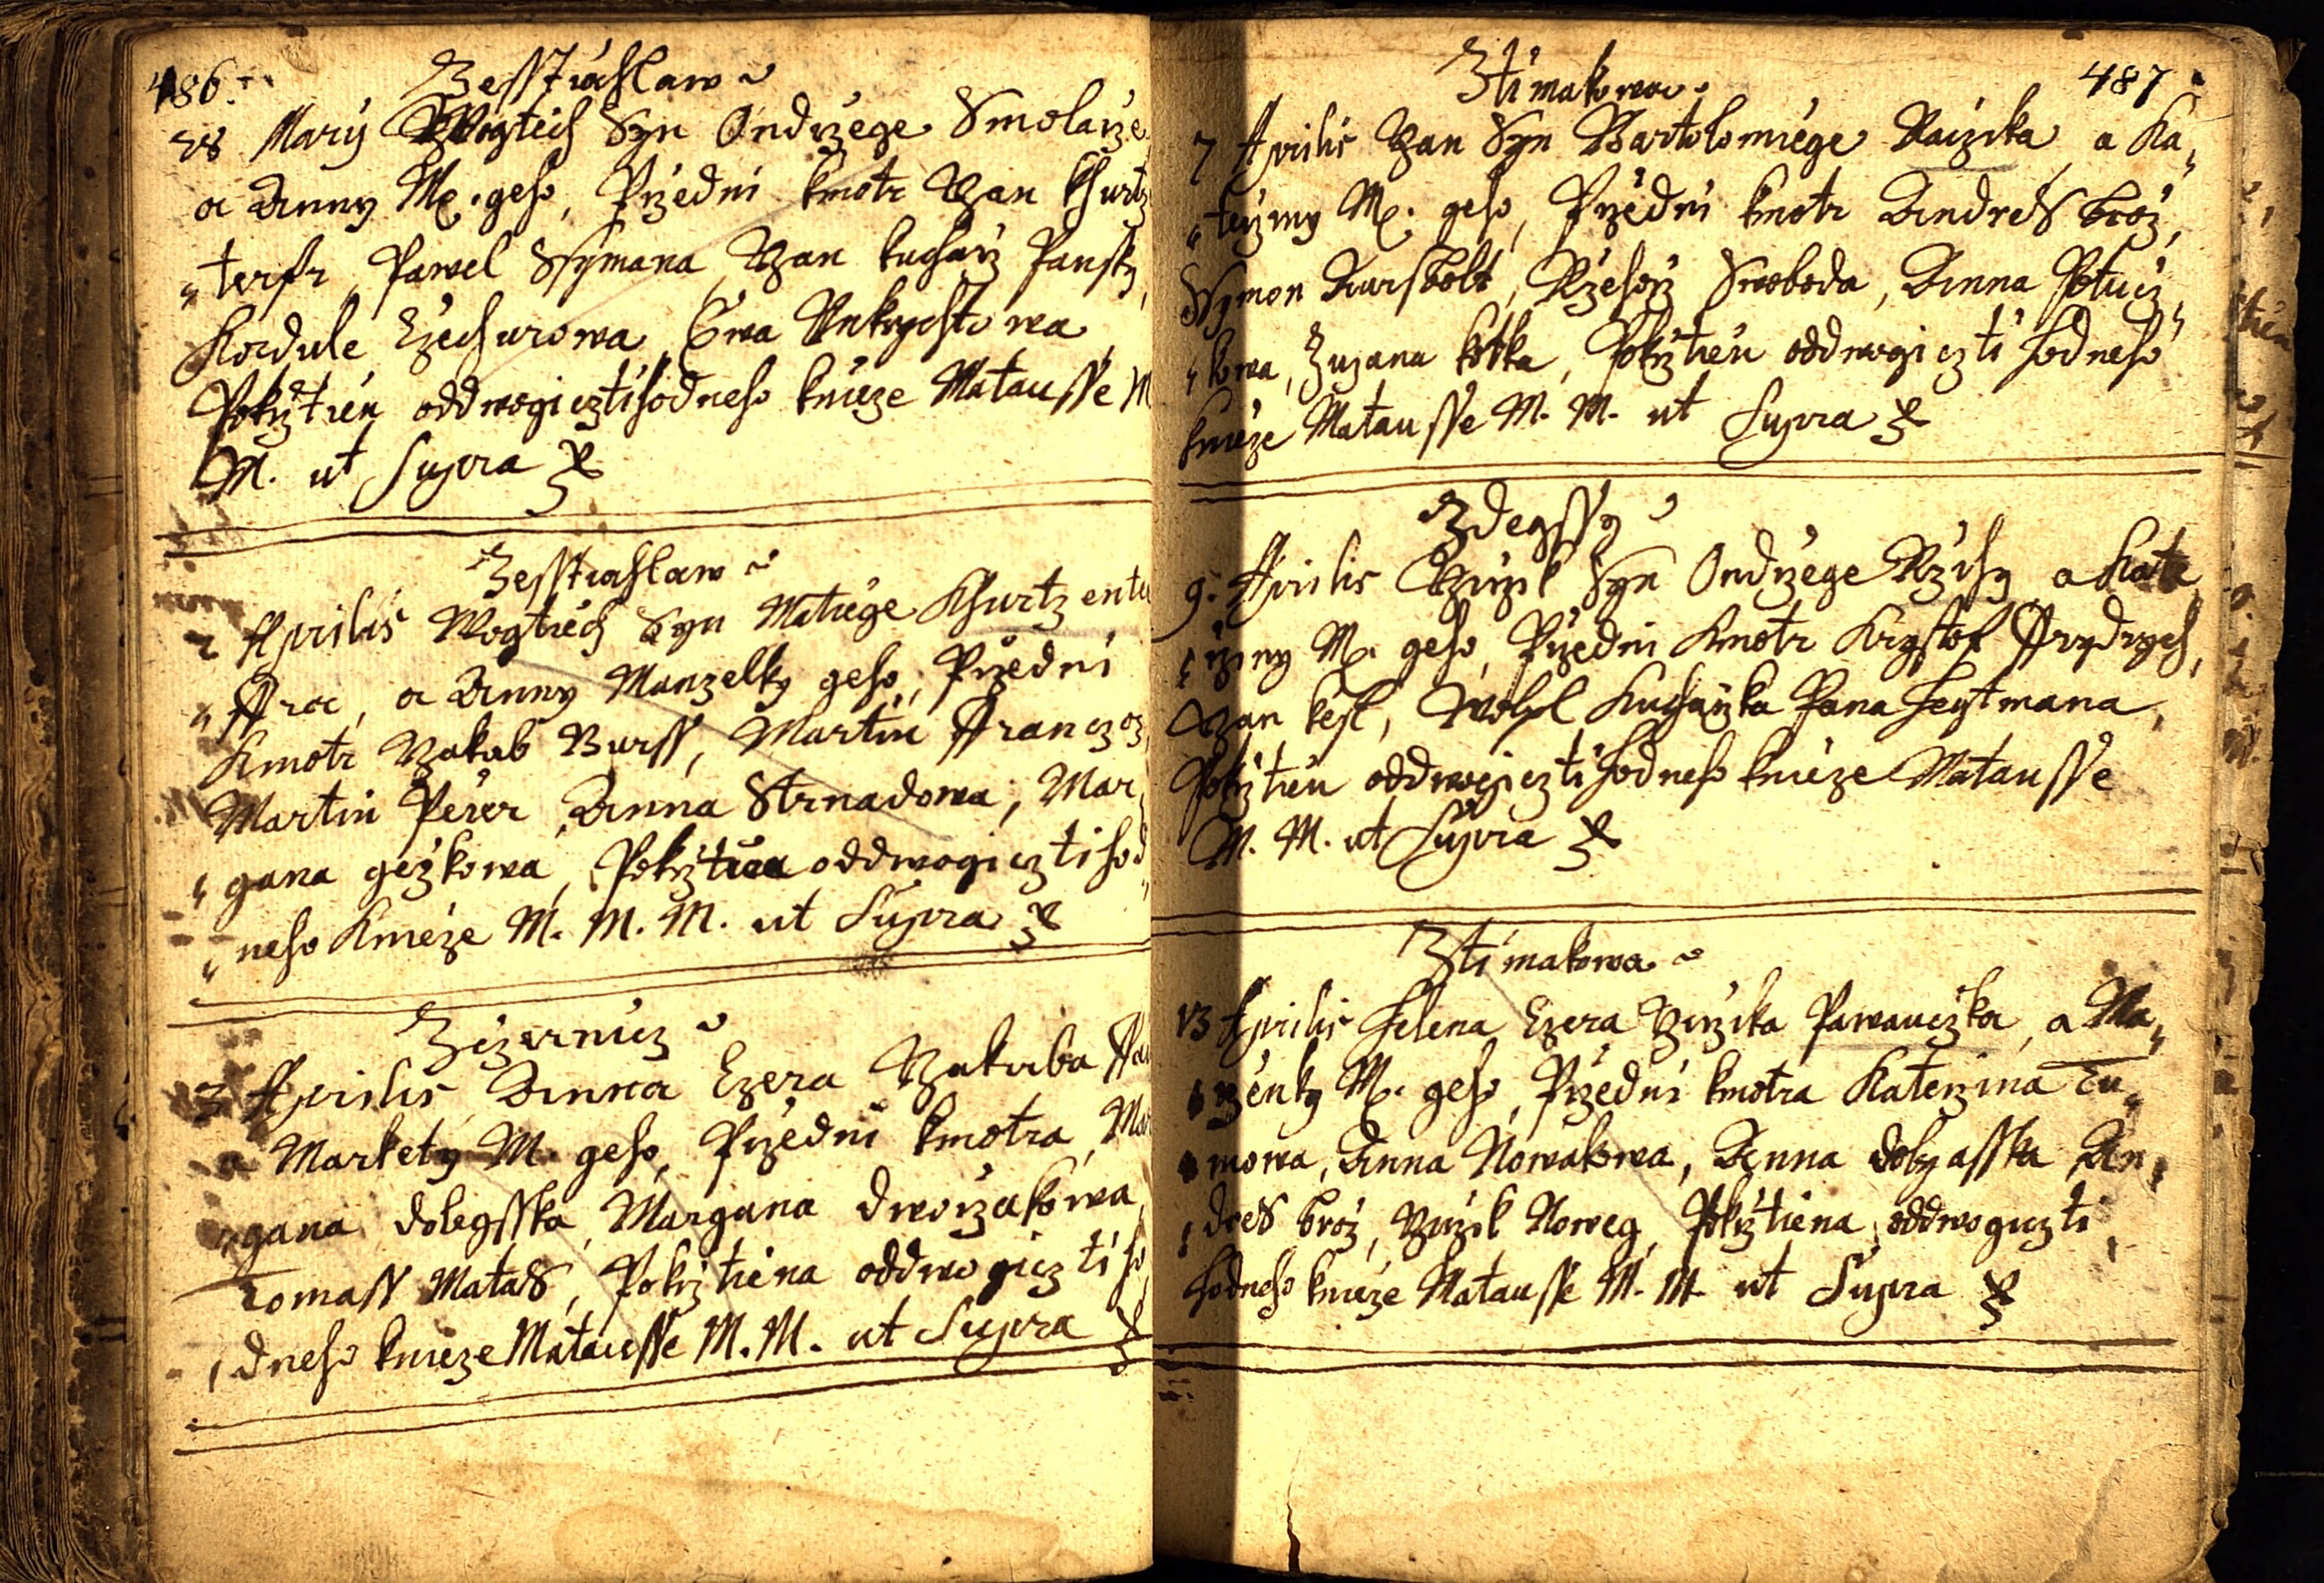 486.
Zesstiahlaw
28 Marty Wogtiech Syn Ondrzege Smolarze
a Anny M. geho, Przedni kmotr Yan Khurtz
terfr, Pawel Ssymana, Yan kucharz Pansky,
Kordule Czechurowa, Ewa
Pokrztien oddwogi cztihodneho knieze Matausse M
M. ut Supra
Zesstiahlaw
2 Aprilis Wogtiech Syn Matiege Khurtzente
a Anny Manzelky geho, Przedni
Kmotr Yakub Burss, Martin Franczoz,
Martin Perer, Anna Strnadowa, Mar
gana gezkowa, Pokrztien oddwogi cztihod
neho Knieze M. M. M. ut Supra
Zizernicz
3 Aprilis Anna Czera Yakuba
a Markety M. geho, Przedni kmotra, Mar
gana dolegsska, Margana dworzakowa,
Tomass MataS, Pokrztiena oddwogi czti ho
dneho knieze Matausse M. M. ut Supra
487
Ztimakowa
7 Aprilis Yan Syn Bartolomiege Raizika, a Ka
terzyny M. geho, Przedni kmotr AndreS broz,
Ssymon, Rzehorz Swoboda, Anna Potucz
kowa, Zuzana kotka, Pokrztien oddwogi czti hodneho
knieze Matausse M. M. ut Supra
Zdegssy
9. Aprilis Yirzik Syn Ondrzege Rzihy, a Kate
rziny M. geho, Przedni Kmotr Krysstof Frydrych,
Yan kesl, Kucharzka Pana heytmana,
Pokrztien oddwogi czti hodneho knieze Matausse
M. M. ut Supra
Ztimakowa
13 Aprilis Helena Czera Yirzika Pawauczka, a Ma
rzenky M. geho, Przedni kmotra Katerzina Tu
mowa, Anna Nowakowa, Anna dobyasska, An
dreS broz, Yirzik Noweg, Pokrztiena, oddwogi czti
hodneho knieze Matausse M. M. ut Supra